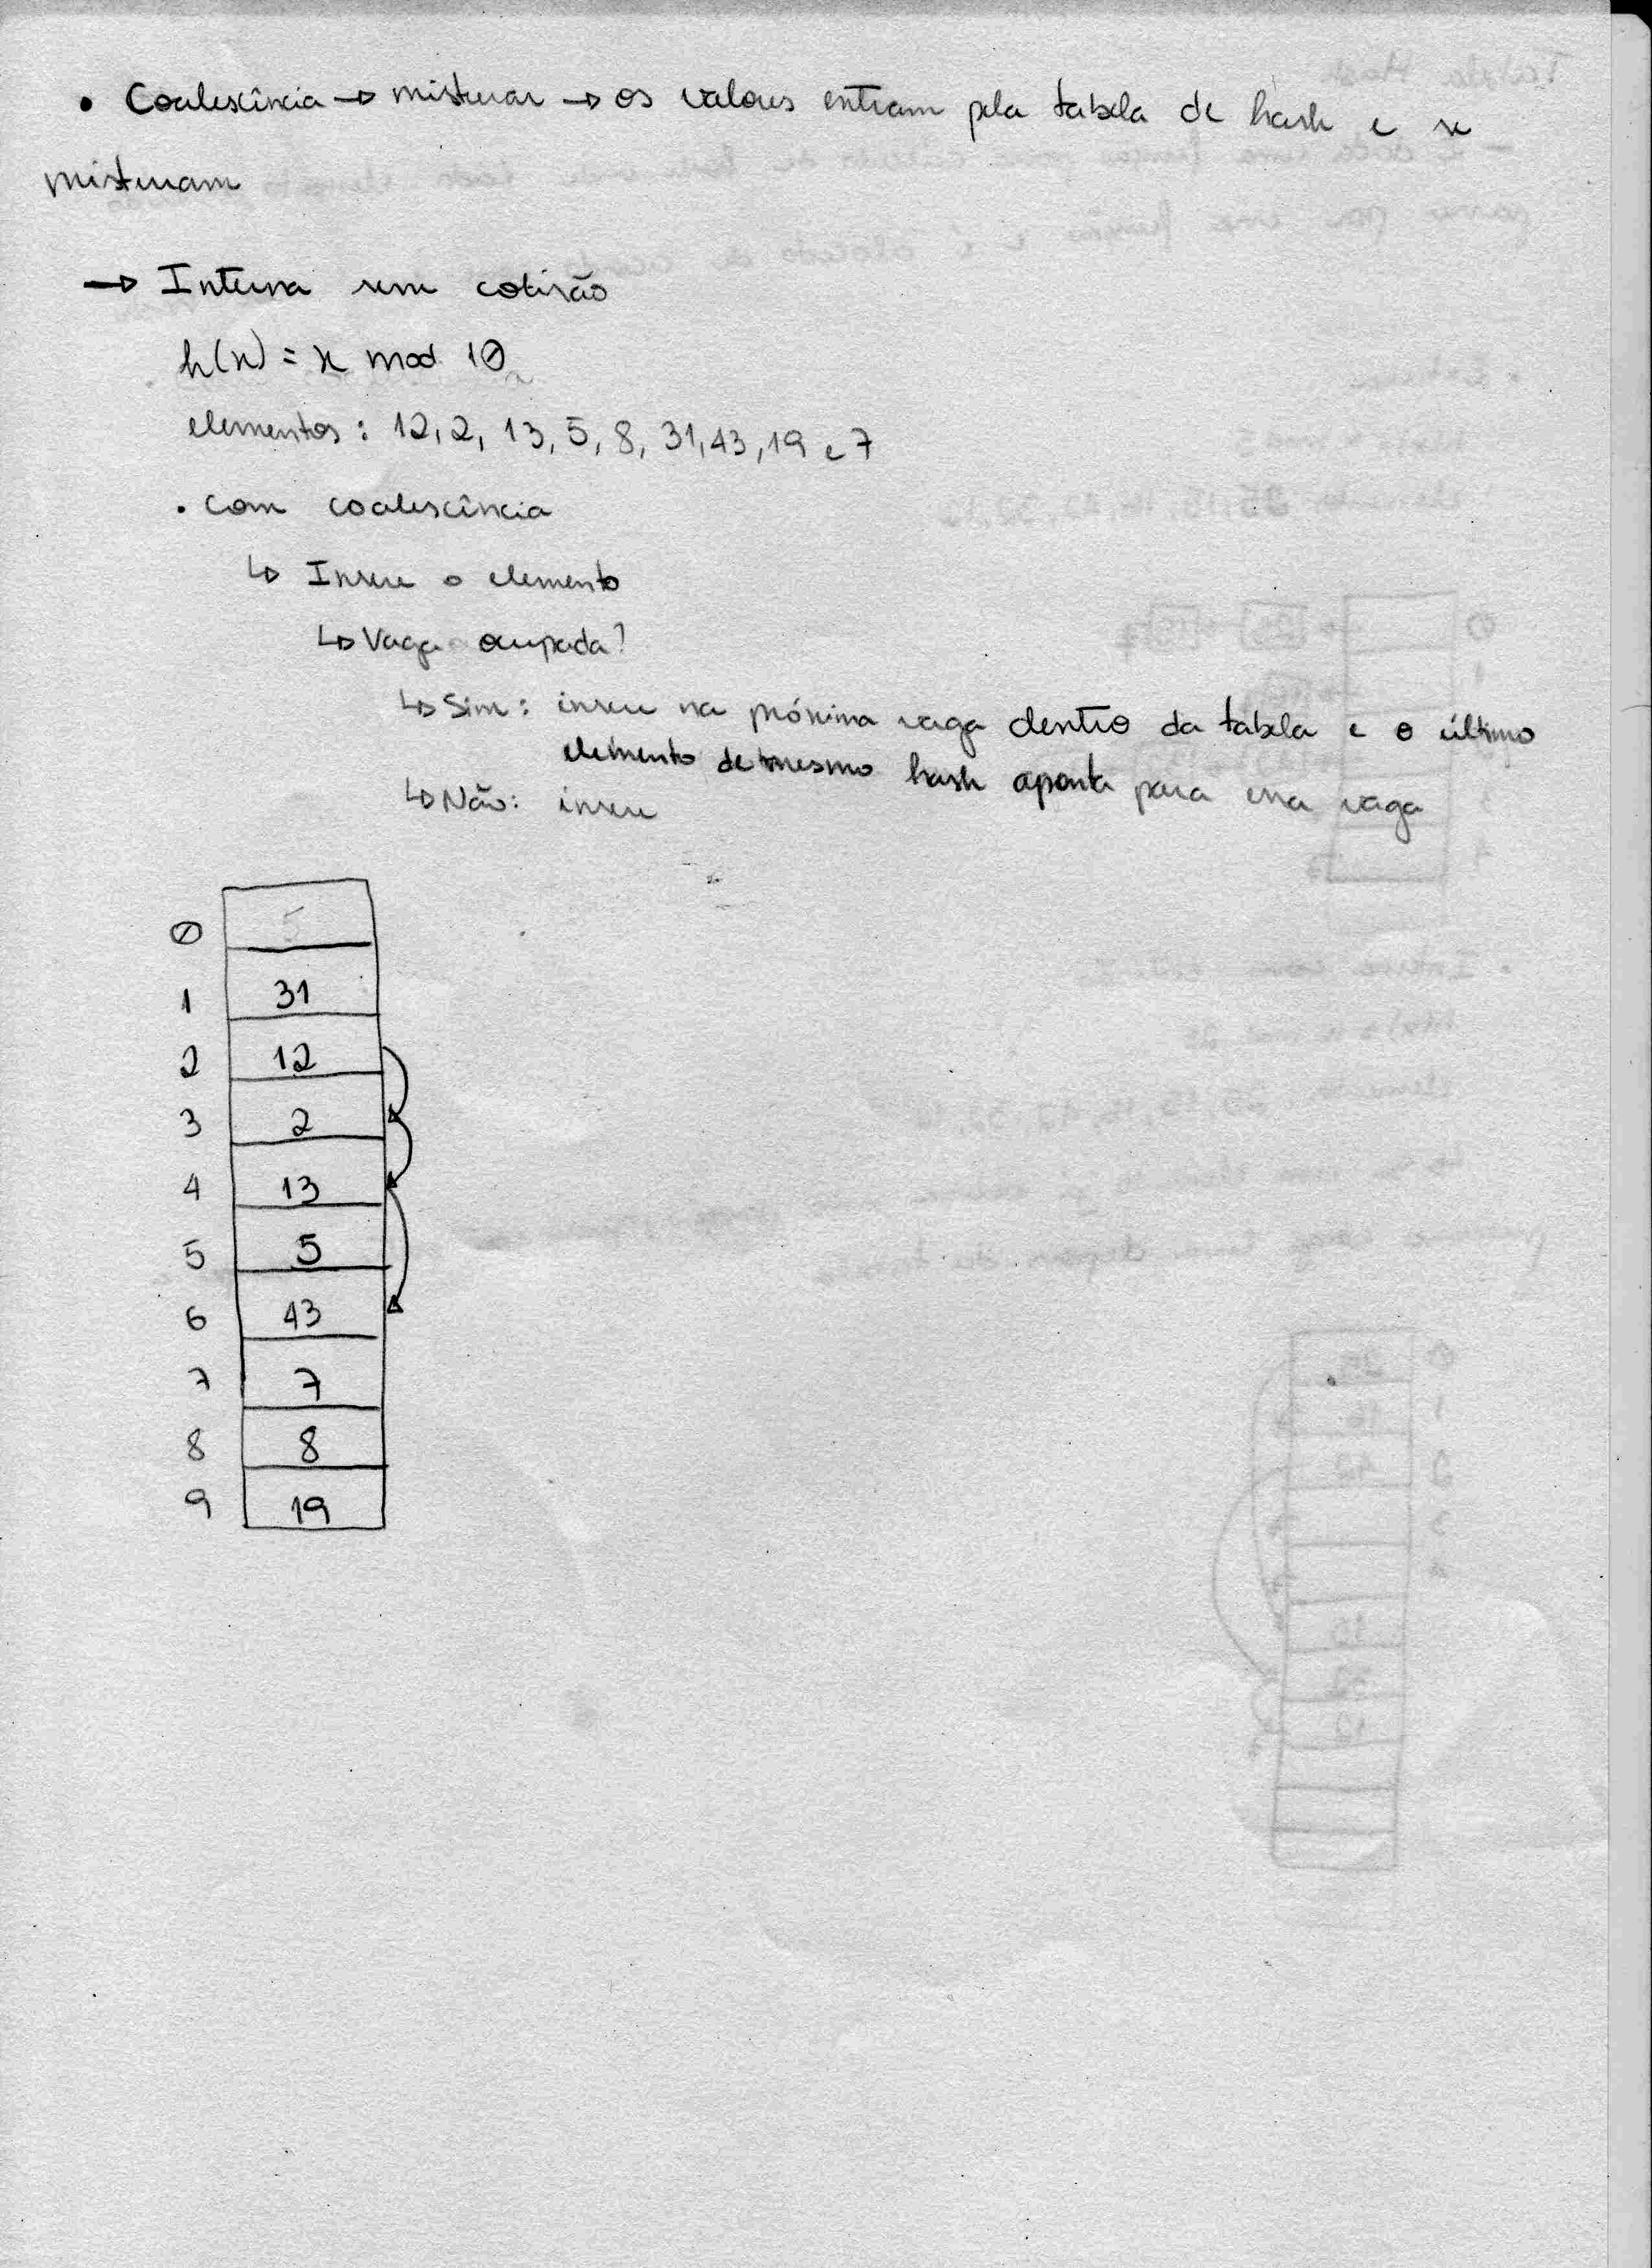 • Coalescência → misturar → os valores entram pela tabela de hash e se
misturam
→ Interna sem colisão
h(x) = x mod 10
elementos: 12, 2, 13, 5, 8, 31, 43, 19 e 7
• com coalescência
↳ Insere o elemento
↳ Vaga ocupada?
↳ Sim: insere na próxima vaga dentro da tabela e o último
elemento de mesmo hash aponta para essa vaga
↳ Não: insere
0
1 31
2 12
3 2
4 13
5 5
6 43
7 7
8 8
9 19